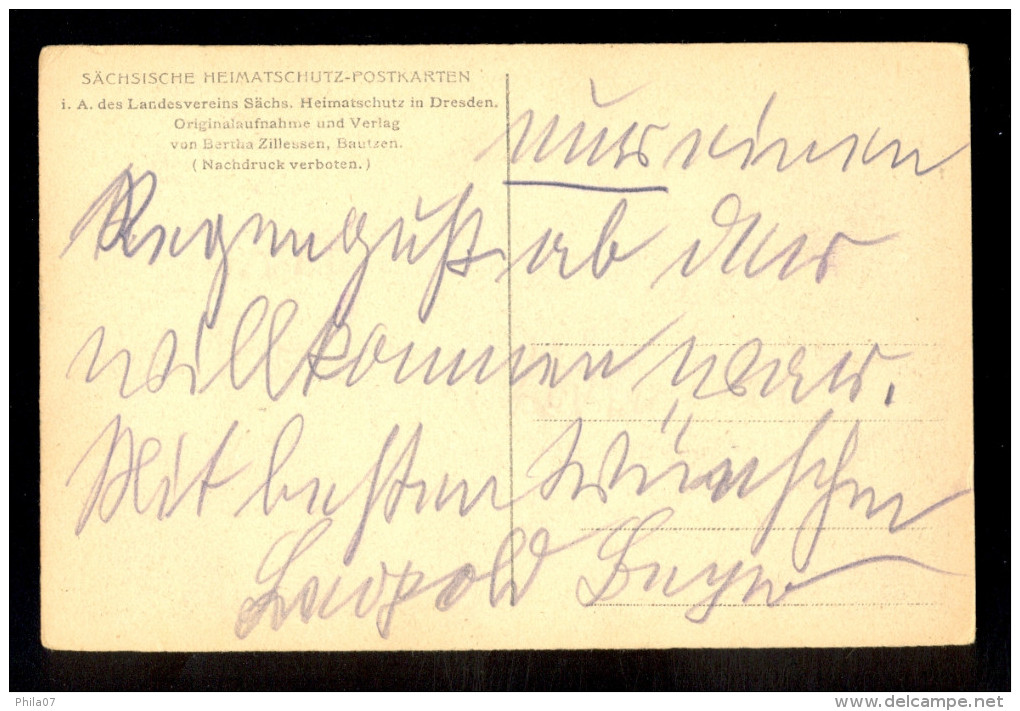 SÄCHSISCHE HEIMATSCHUTZ-POSTKARTEN
i. A. des Landesvereins Sächs. Heimatschutz in Dresden.
Originalaufnahme und Verlag
von Bertha Zillessen, Bautzen.
(Nachdruck verboten.)
nur einen
Regenguß ab der
willkommen war.
Mit besten Wünschen
Leopold
Phila07
www.delcampe.net